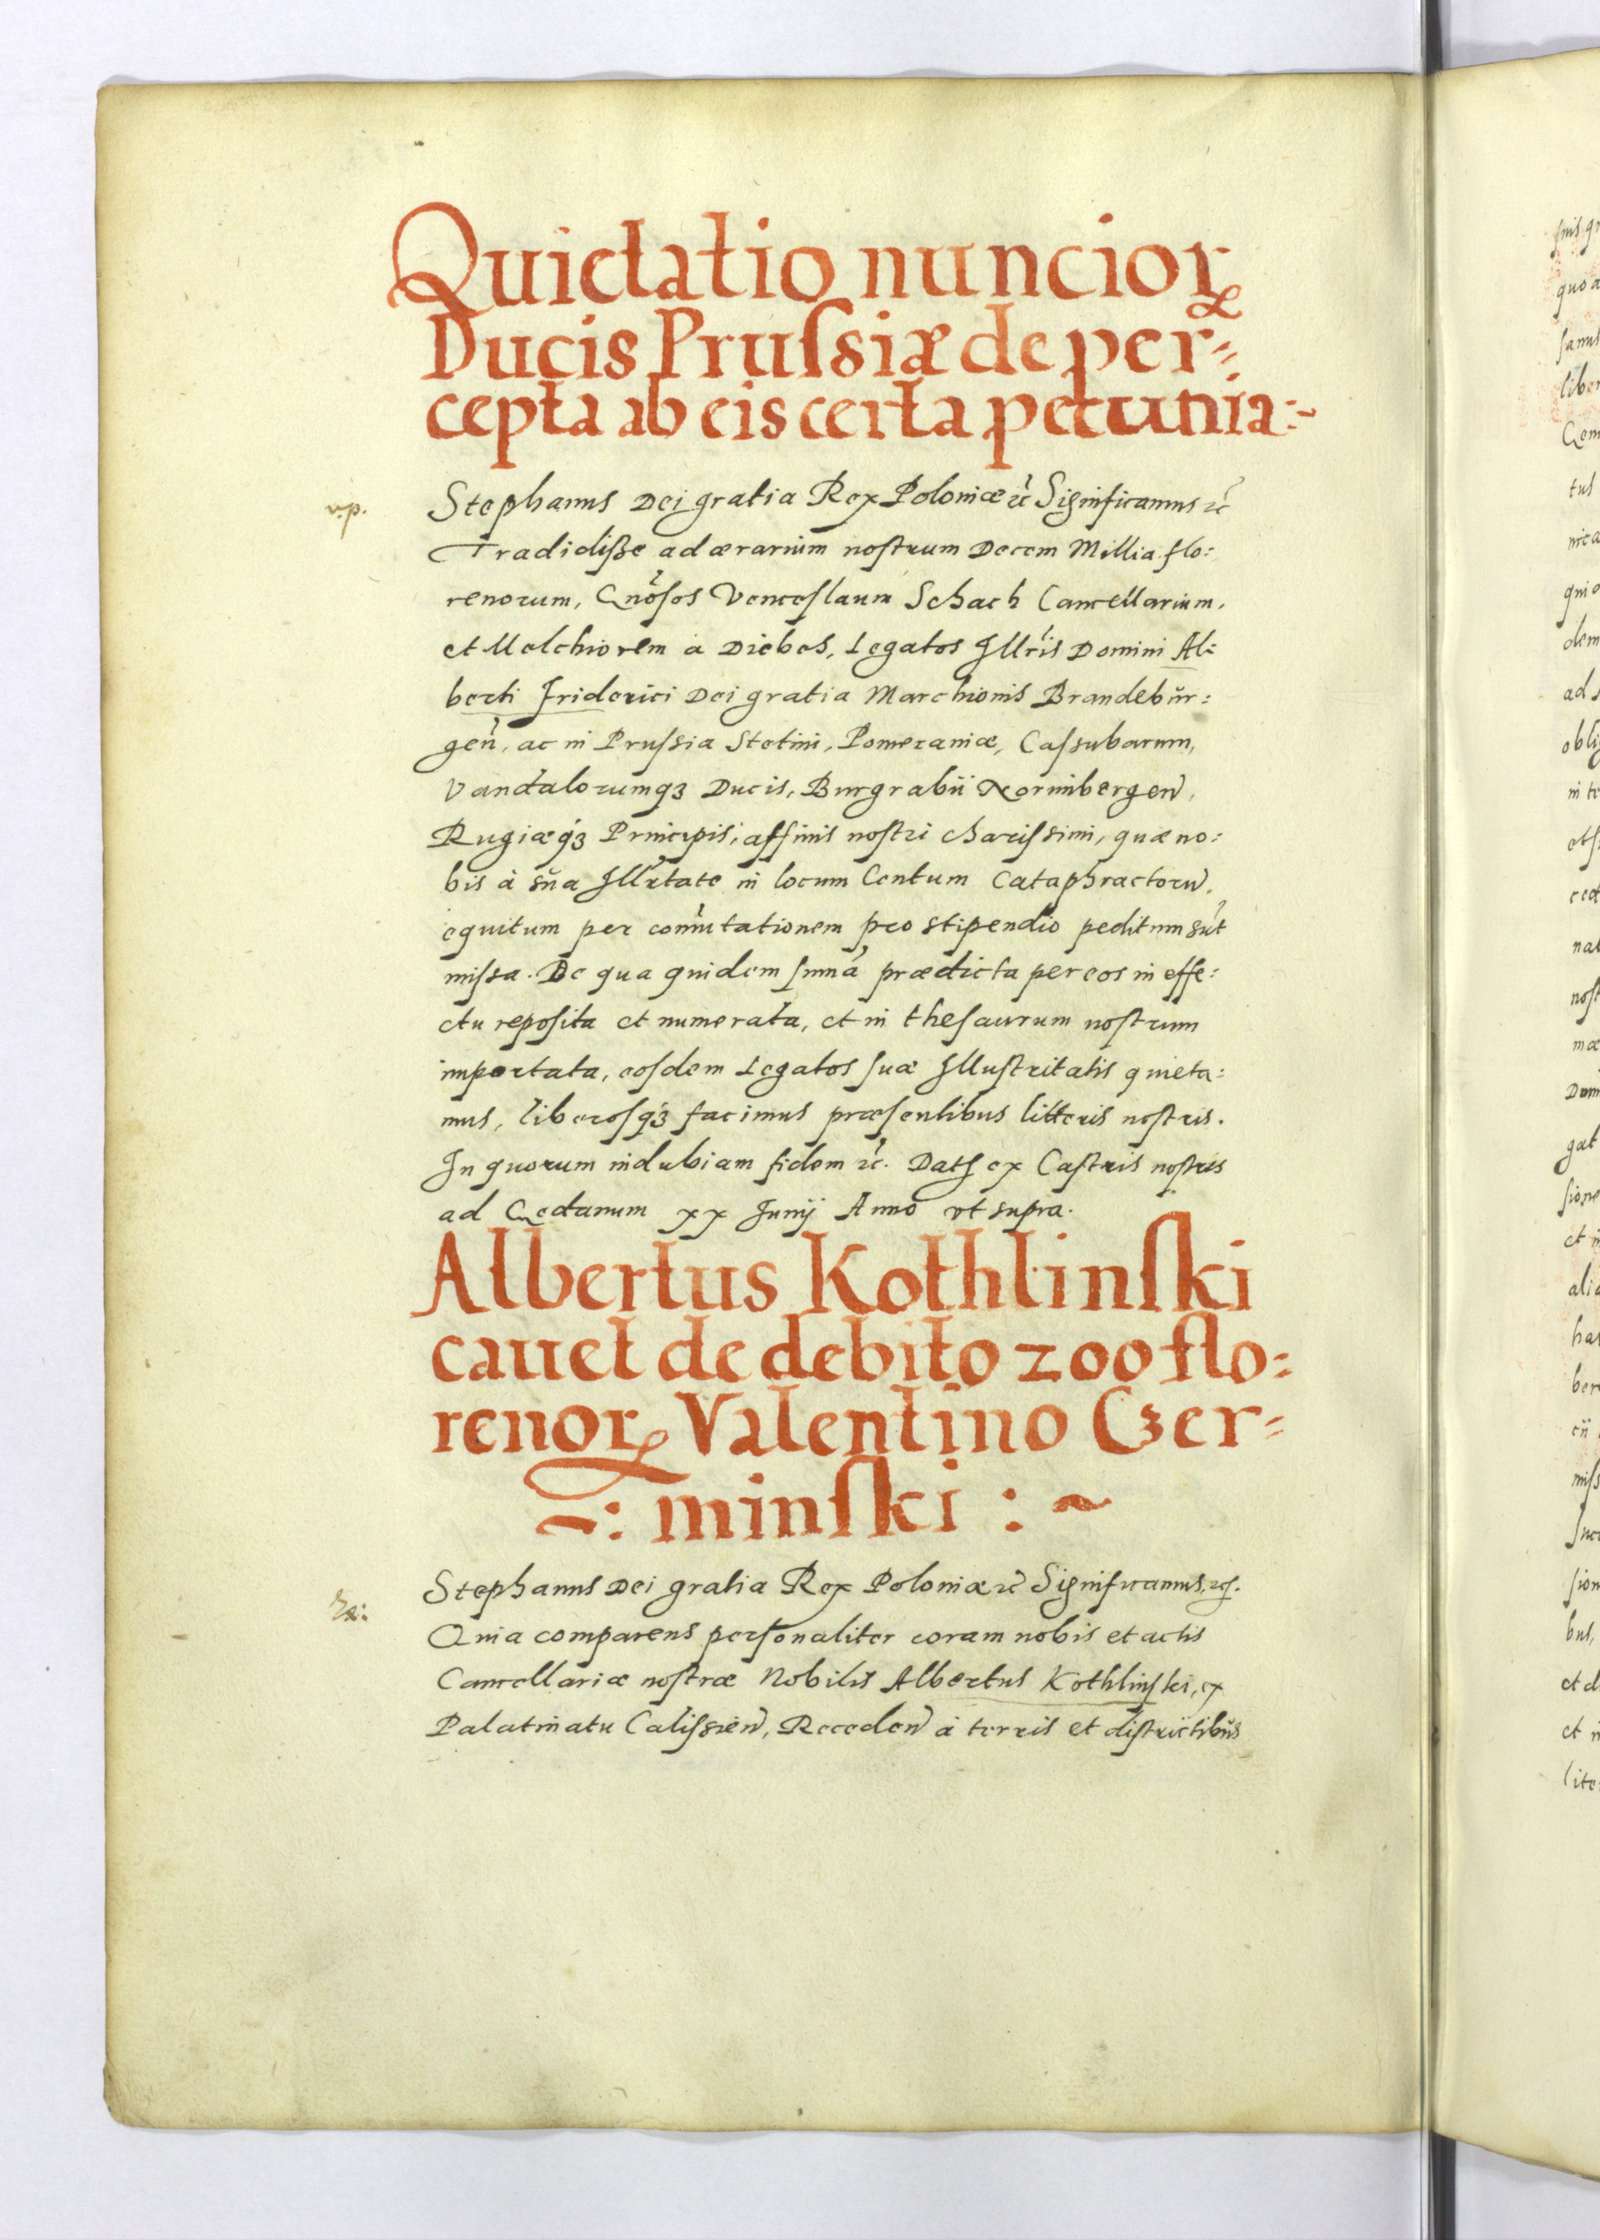 Quictatio nuncioꝝ
Ducis Prußiæ de per⸗
cepta ab eis certa pecunia:~
v.p.
Stephanus Dei gratia Rex Poloniæ ꝛc̃ Significamus ꝛc̃
Tradidiße ad ærarium nostrum Decem Millia flo:
renorum, Gñosos Venceslaum Schach Cancellarium,
et Melchiorem à Diebes, Legatos Illr̃is Domini Al:
berti Friderici Dei gratia Marchionis Brandebur:
geñ, ac in Prussia Stetini, Pomeraniæ, Cassubarum,
Vandalorumqꝫ Ducis, Burgrabii Norimbergeñ,
Rugiæqꝫ Principis, affinis nostri charissimi, quæ no:
bis à sua Illr̃tate in locum Centum Cataphractorũ,
equitum per com̃utationem pro stipendio peditum sũt
missa. De qua quidem sum̃a prædicta per eos in effe:
ctu reposita et numerata, et in thesaurum nostrum
importata, eosdem Legatos suæ Illustritatis quieta:
mus, liberosqꝫ facimus præsentibus litteris nostris.
In quorum indubiam fidem ꝛc̃. Datꝭ ex Castris nostris
ad Gedanum xx Junij Anno vt supra.
Albertus Kothlinski
cauet de debito 200 flo:
renoꝝ Valentino Czer⸗
~: minski :~
Stephanus Dei gratia Rex Poloniæ ꝛc̃ Significamus, ꝛc̃.
Quia comparens personaliter coram nobis et actis
Cancellariæ nostræ Nobilis Albertus Kothlinski, ex
Palatinatu Calissieñ, Recedeñ à terris et districtibus